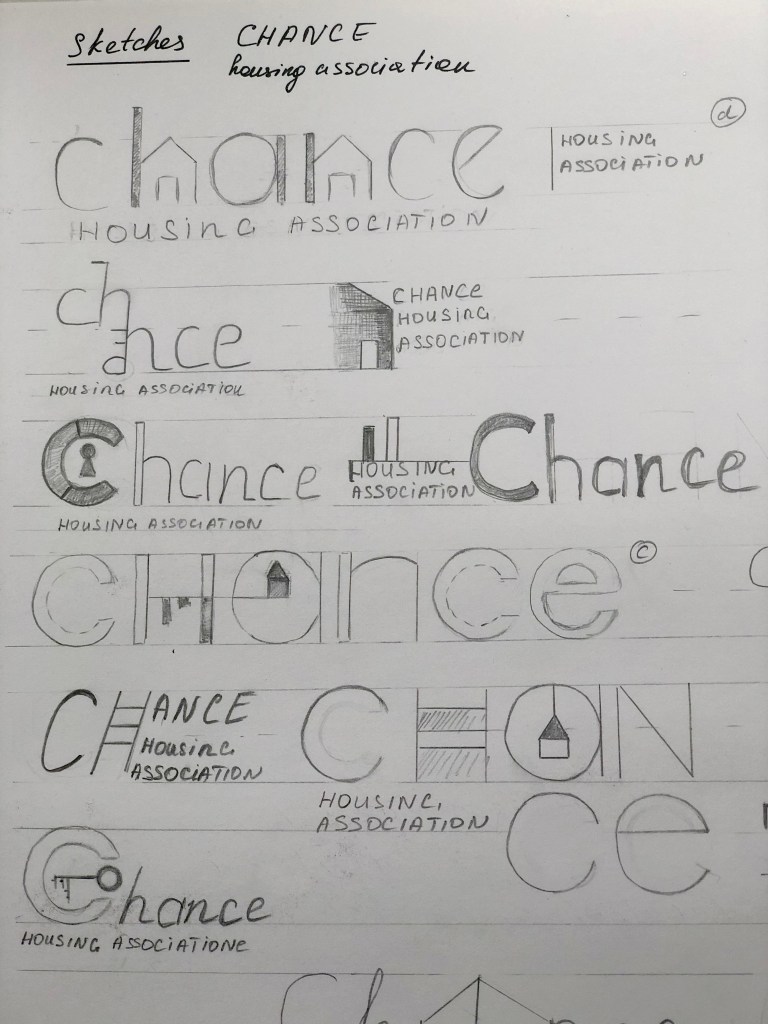 Sketches CHANCE
housing association
chance
d
HOUSING
ASSOCIATION
HOUSING ASSOCIATION
ch
ance
HOUSING ASSOCIATION
CHANCE
HOUSING
ASSOCIATION
Chance
HOUSING ASSOCIATION
HOUSING
ASSOCIATION
Chance
CHance
c
CHANCE
Housing
ASSOCIATION
CHAN
ce
HOUSING
ASSOCIATION
Chance
HOUSING ASSOCIATIONE